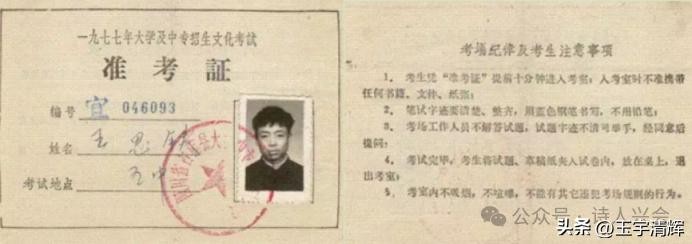 一九七七年大学及中专招生文化考试
准考証
编号 宜 046093
姓名 王思
考试地点 五中
考场纪律及考生注意事项
1、考生凭“准考证”提前十分钟进入考室；入考室时不准携带
任何书籍、文件、纸张；
2、笔试字迹要清楚、整齐，用蓝色钢笔书写，不用铅笔；
3、考场工作人员不解答试题，试题字迹不清可举手，经同意后
提问；
4、考试完毕，考生将试题、草稿纸夹入试卷内，放在桌上，退
出考室；
5、考室内不吸烟，不喧哗，不能有其它违犯考场规则的行为。
公众号·诗人兴会
头条 @玉宇清辉